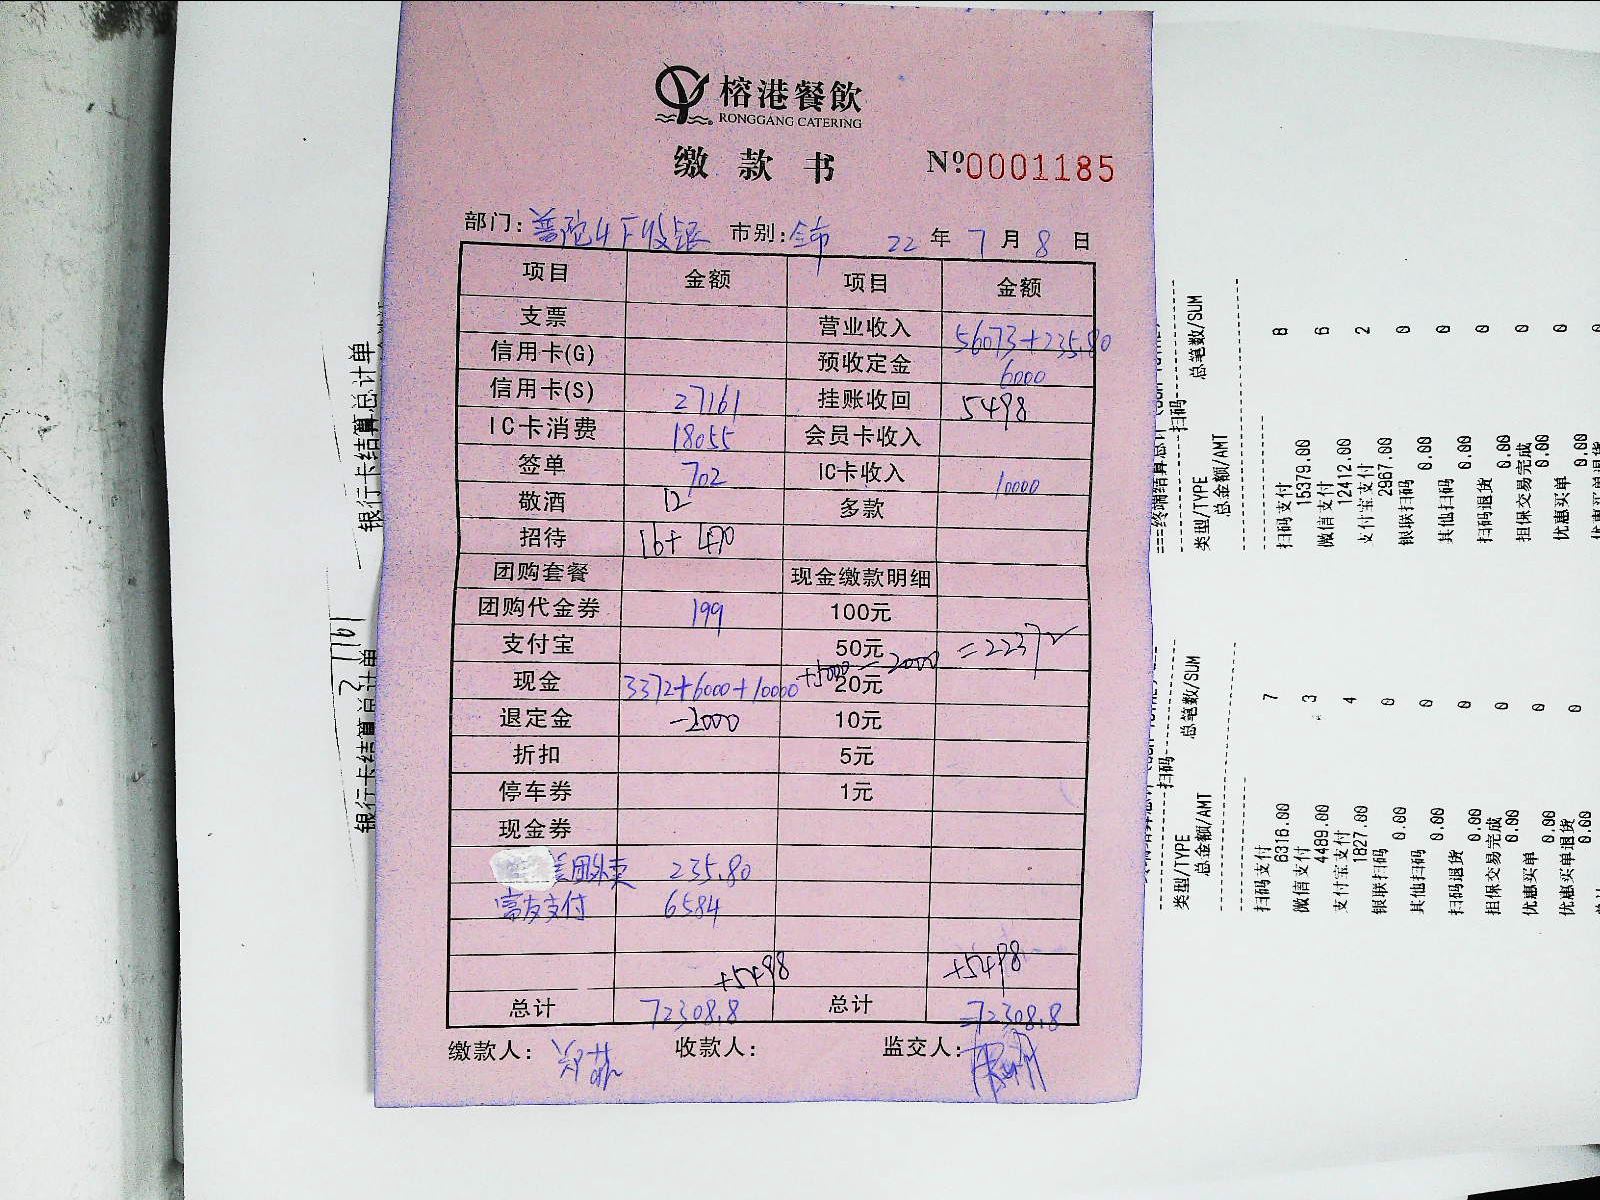 榕港餐飲
RONGGANG CATERING
缴款书 №0001185
部门: 普陀4F收银 市别: 全市 22年7月8日
项目 金额 项目 金额
支票 营业收入 56073+235.80
信用卡(G) 预收定金 6000
信用卡(S) 27161 挂账收回 5498
IC卡消费 18055 会员卡收入
签单 702 IC卡收入 10000
敬酒 12 多款
招待 16+470
团购套餐 现金缴款明细
团购代金券 199 100元
支付宝 50元 =22372
现金 3372+6000+10000 +5000-2000 20元
退定金 -2000 10元
折扣 5元
停车券 1元
现金券
美团外卖 235.80
富友支付 6584
+5498 +5498
总计 72308.8 总计 =72308.8
缴款人: 收款人: 监交人:
银行卡结算总计单
27161
银行卡结算总计单
扫码
类型/TYPE 总笔数/SUM
总金额/AMT
扫码支付 8
15379.00
微信支付 6
12412.00
支付宝支付 2
2967.00
银联扫码 0
0.00
其他扫码 0
0.00
扫码退货 0
0.00
担保交易完成 0
0.00
优惠买单 0
0.00
扫码
类型/TYPE 总笔数/SUM
总金额/AMT
扫码支付 7
6316.00
微信支付 3
4489.00
支付宝支付 4
1827.00
银联扫码 0
0.00
其他扫码 0
0.00
扫码退货 0
0.00
担保交易完成 0
0.00
优惠买单 0
0.00
优惠买单退货 0
0.00